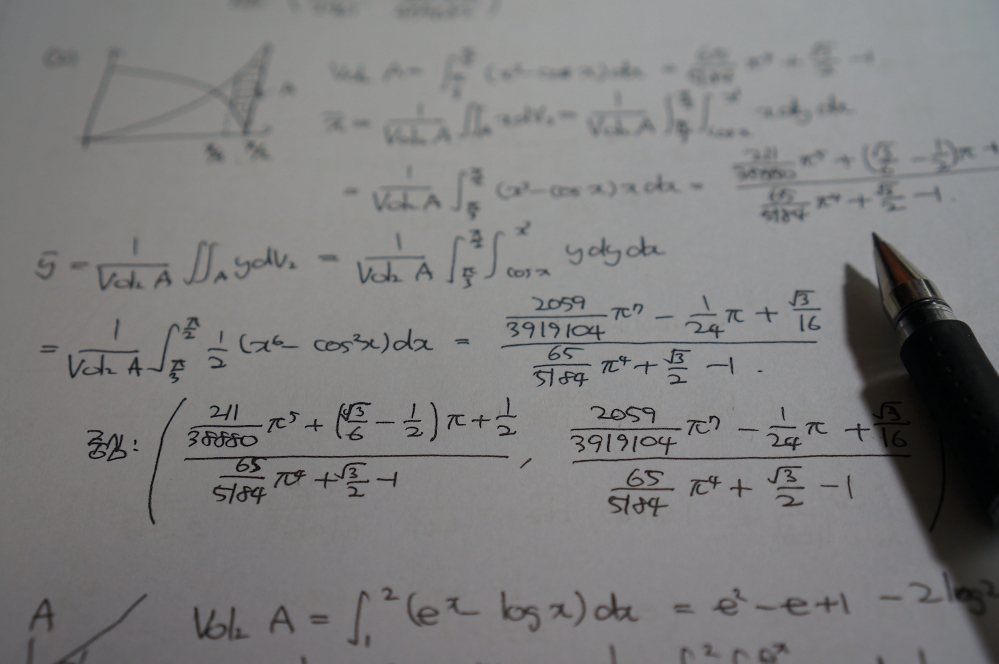 Vol₂ A = ∫_{π/3}^{π/2} (x³ - cos x) dx = 65/5184 π⁴ + √3/2 - 1
x̄ = 1/(Vol₂ A) ∬_A x dV₂ = 1/(Vol₂ A) ∫_{π/3}^{π/2} ∫_{cos x}^{x³} x dy dx
= 1/(Vol₂ A) ∫_{π/3}^{π/2} (x³ - cos x) x dx = (211/38880 π⁵ + (√3/6 - 1/2)π + / (65/5184 π⁴ + √3/2 - 1) .
ȳ = 1/(Vol₂ A) ∬_A y dV₂ = 1/(Vol₂ A) ∫_{π/3}^{π/2} ∫_{cos x}^{x³} y dy dx
= 1/(Vol₂ A) ∫_{π/3}^{π/2} 1/2 (x⁶ - cos²x) dx = (2059/3919104 π⁷ - 1/24 π + √3/16) / (65/5184 π⁴ + √3/2 - 1) .
중심: ( (211/38880 π⁵ + (√3/6 - 1/2)π + 1/2) / (65/5184 π⁴ + √3/2 - 1) , (2059/3919104 π⁷ - 1/24 π + √3/16) / (65/5184 π⁴ + √3/2 - 1) )
A Vol₂ A = ∫_1^2 (eˣ - log x) dx = e² - e + 1 - 2 log 2